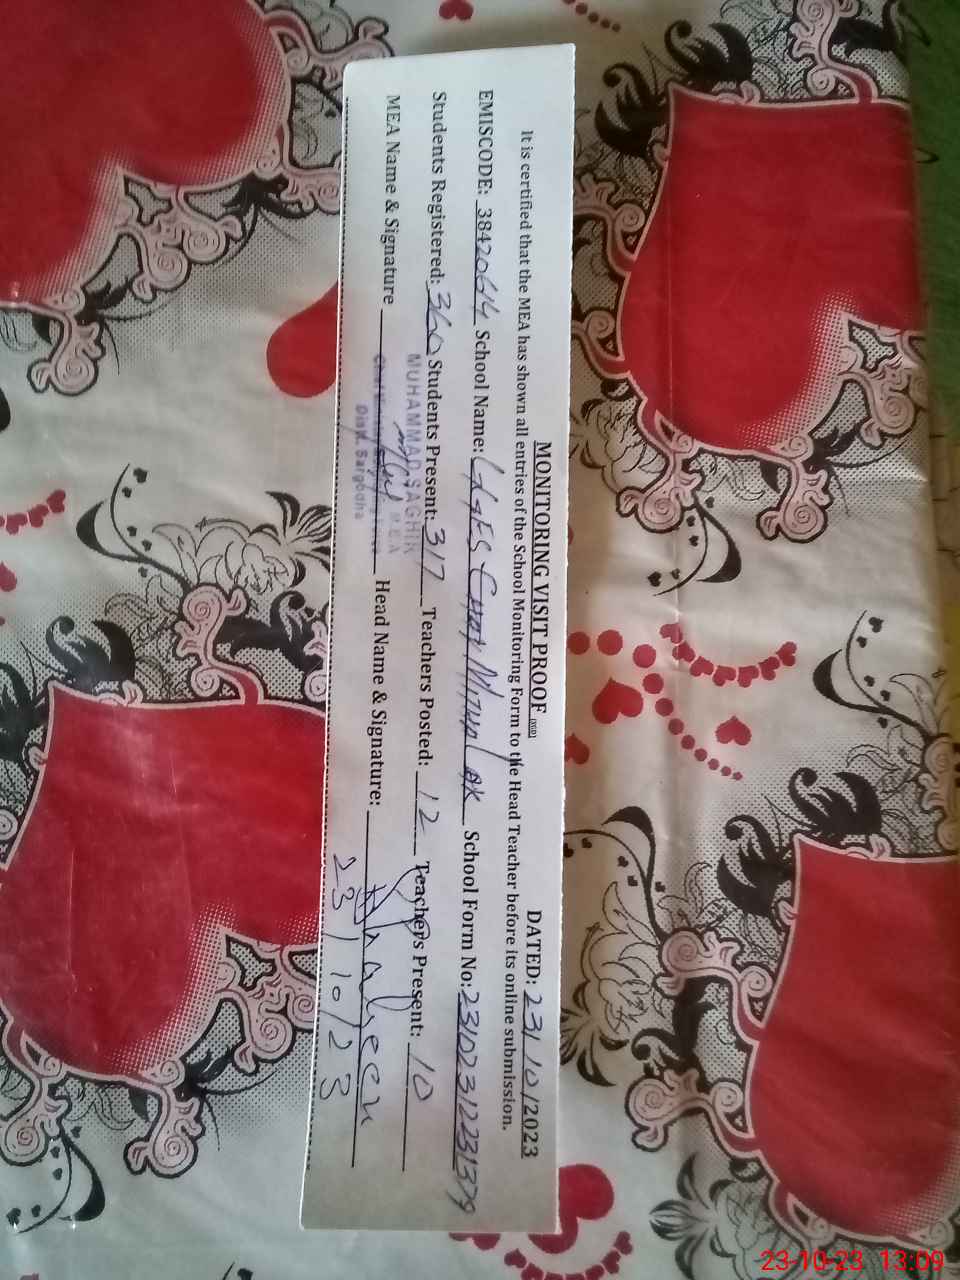 MONITORING VISIT PROOF
DATED: 23/10/2023
It is certified that the MEA has shown all entries of the School Monitoring Form to the Head Teacher before its online submission.
EMISCODE: 38420614 School Name: Mithal School Form No: 23102312231379
Students Registered: 360 Students Present: 317 Teachers Posted: 12 Teachers Present: 10
MEA Name & Signature MUHAMMAD SAGHIR Head Name & Signature:
MEA
Distt. Sargodha
23/10/23
23-10-23 13:09